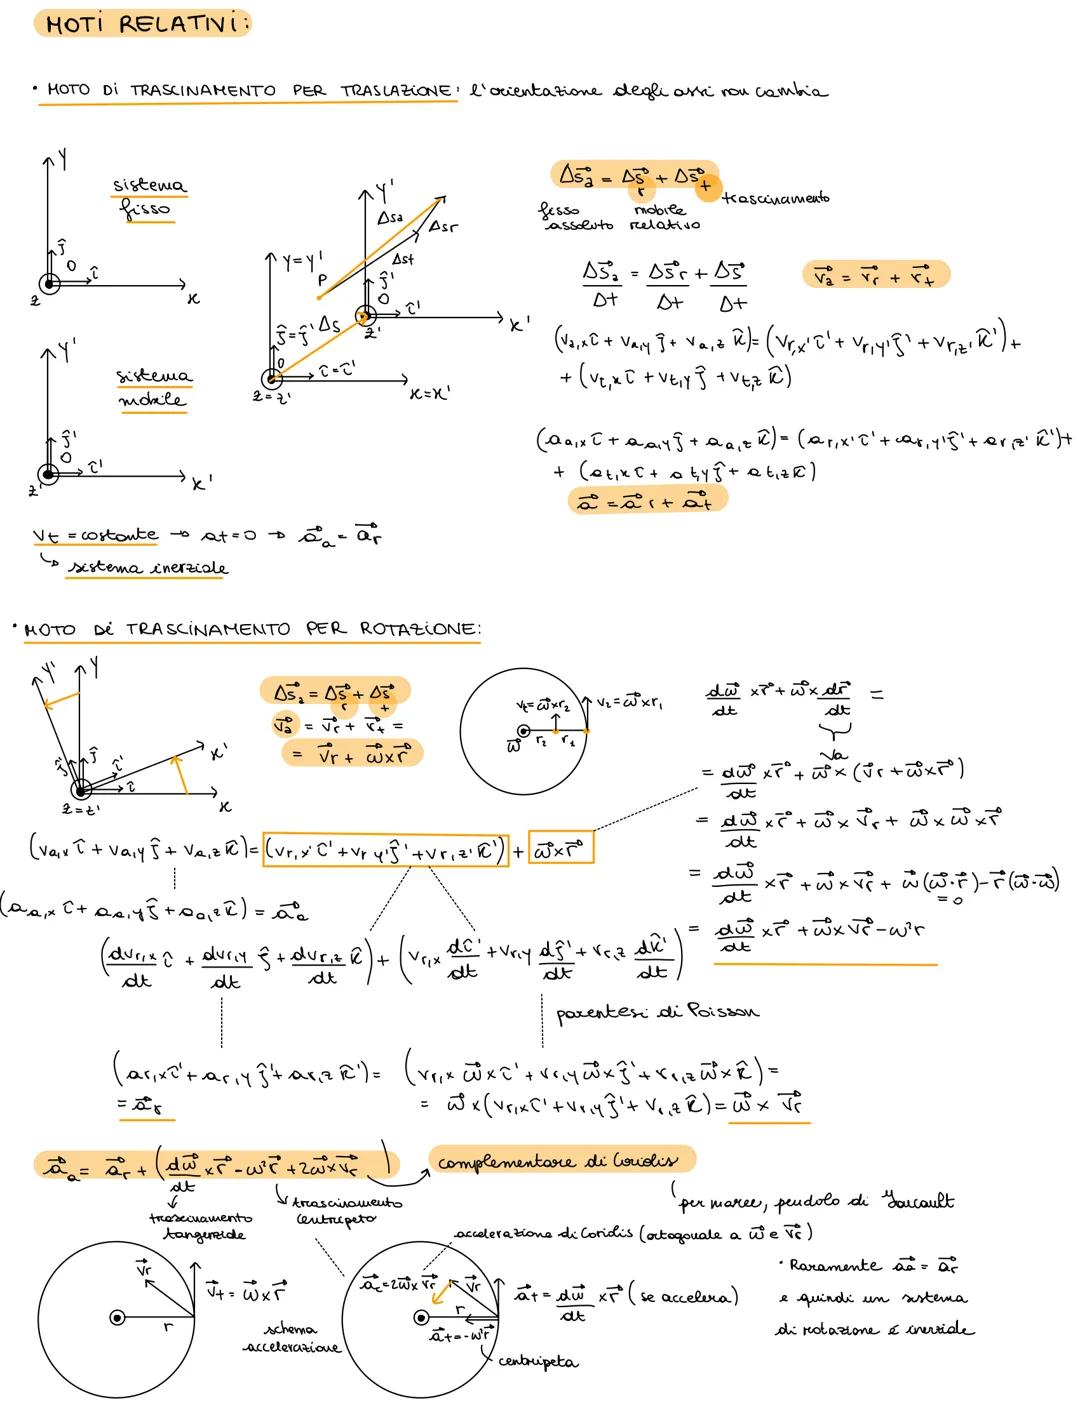 MOTI RELATIVI:
• MOTO DI TRASCINAMENTO PER TRASLAZIONE: l'orientazione degli assi non cambia
Y
sistema
fisso
ĵ
O
î
z
x
Y'
sistema
mobile
ĵ'
O
î'
z'
x'
Y=Y'
P
Y'
Δsa
Δsr
Δst
ĵ'
O
î'
z'
x'
ĵ=ĵ'
Δs
O
î=î'
z=z'
x=x'
Δs⃗a = Δs⃗r + Δs⃗t
trascinamento
fisso mobile
assoluto relativo
Δs⃗a/Δt = Δs⃗r/Δt + Δs⃗/Δt
v⃗a = v⃗r + v⃗t
(va,x î + va,y ĵ + va,z k̂) = (vr,x' î' + vr,y' ĵ' + vr,z' k̂') +
+ (vt,x î + vt,y ĵ + vt,z k̂)
(aa,x î + aa,y ĵ + aa,z k̂) = (ar,x' î' + ar,y' ĵ' + ar,z' k̂') +
+ (at,x î + at,y ĵ + at,z k̂)
a⃗ = a⃗r + a⃗t
vt = costante → at = 0 → a⃗a = a⃗r
↳ sistema inerziale
• MOTO DI TRASCINAMENTO PER ROTAZIONE:
Y' Y
x'
ĵ' ĵ
î'
î
z=z'
x
Δs⃗a = Δs⃗r + Δs⃗t
v⃗a = v⃗r + v⃗t =
= v⃗r + ω⃗×r⃗
vt=ω⃗×r2
v2=ω⃗×r1
ω⃗
r2 r1
dω⃗/dt ×r⃗ + ω⃗× dr⃗/dt =
va
= dω⃗/dt ×r⃗ + ω⃗×(v⃗r + ω⃗×r⃗)
= dω⃗/dt ×r⃗ + ω⃗×v⃗r + ω⃗×ω⃗×r⃗
= dω⃗/dt ×r⃗ + ω⃗×v⃗r + ω⃗(ω⃗·r⃗) - r⃗(ω⃗·ω⃗)
=0
= dω⃗/dt ×r⃗ + ω⃗×v⃗r - ω²r
(va,x î + va,y ĵ + va,z k̂) = (vr,x' î' + vr y' ĵ' + vr,z' k̂') + ω⃗×r⃗
(aa,x î + aa,y ĵ + aa,z k̂) = a⃗a
(dvr,x/dt î + dvr,y/dt ĵ + dvr,z/dt k̂) + (vr,x dî'/dt + vr,y dĵ'/dt + vr,z dk̂'/dt)
parentesi di Poisson
(ar,x î' + ar,y ĵ' + ar,z k̂') =
= a⃗r
(vr,x ω⃗×î' + vr,y ω⃗×ĵ' + vr,z ω⃗×k̂) =
= ω⃗×(vr,x î' + vr,y ĵ' + vr,z k̂) = ω⃗ × v⃗r
a⃗a = a⃗r + (dω⃗/dt ×r⃗ - ω²r⃗ + 2ω⃗×v⃗r)
complementare di Coriolis
trascinamento
tangenziale
trascinamento
centripeto
per maree, pendolo di Foucault
accelerazione di Coriolis (ortogonale a ω⃗ e v⃗r)
v⃗r
v⃗t = ω⃗×r⃗
r
schema
accelerazione
a⃗c=2ω⃗×v⃗r
v⃗r
r
a⃗t=-ω²r⃗
a⃗t = dω⃗/dt ×r⃗ (se accelera)
centripeta
• Raramente a⃗a = a⃗r
e quindi un sistema
di rotazione è inerziale